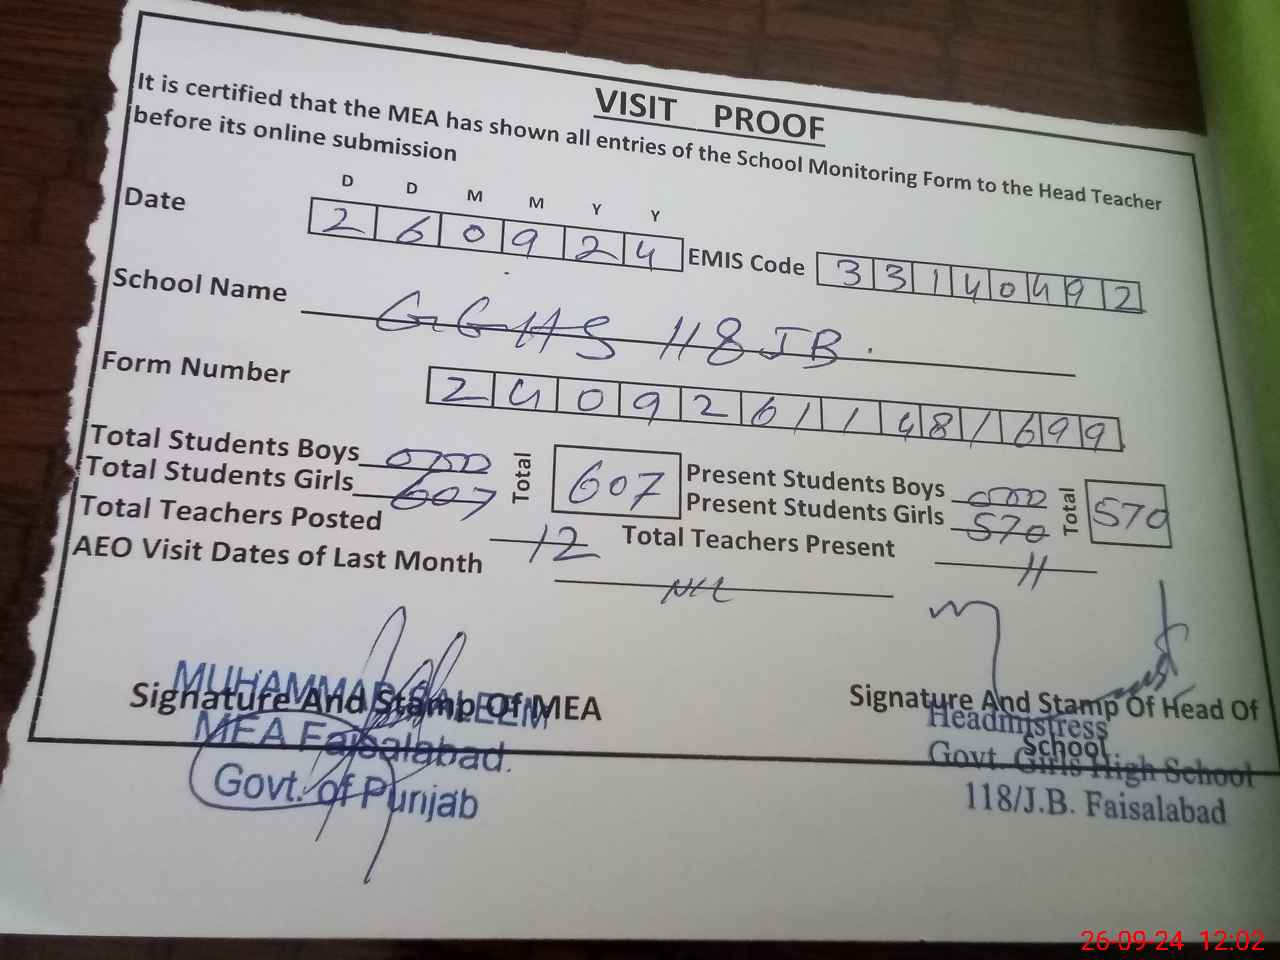 VISIT PROOF
It is certified that the MEA has shown all entries of the School Monitoring Form to the Head Teacher
before its online submission
D D M M Y Y
Date 2 6 0 9 2 4 EMIS Code 3 3 1 4 0 4 9 2
School Name GGHS 118 JB.
Form Number 2 4 0 9 2 6 1 1 4 8 1 6 9 9
Total Students Boys 000 Total 607 Present Students Boys 000 Total 570
Total Students Girls 607 Present Students Girls 570
Total Teachers Posted 12 Total Teachers Present 11
AEO Visit Dates of Last Month Nil
MUHAMMAD SALEEM
Signature And Stamp Of MEA Signature And Stamp Of Head Of
School
MEA Faisalabad.
Govt. of Punjab
Headmistress
Govt. Girls High School
118/J.B. Faisalabad
26-09-24 12:02